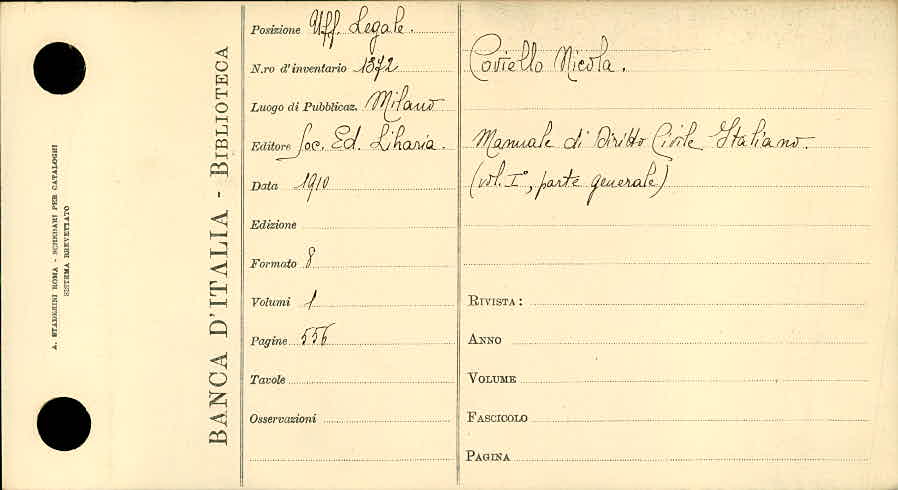 A. STADERINI ROMA - SCHEDARI PER CATALOGHI
SISTEMA BREVETTATO
BANCA D'ITALIA - BIBLIOTECA
Posizione Uff. Legale.
N.ro d'inventario 1372
Luogo di Pubblicaz. Milano
Editore Soc. Ed. Libraria.
Data 1910
Edizione
Formato 8
Volumi 1
Pagine 556
Tavole
Osservazioni
Coviello Nicola.
Manuale di Diritto Civile Italiano.
(vol. I°, parte generale)
RIVISTA:
ANNO
VOLUME
FASCICOLO
PAGINA